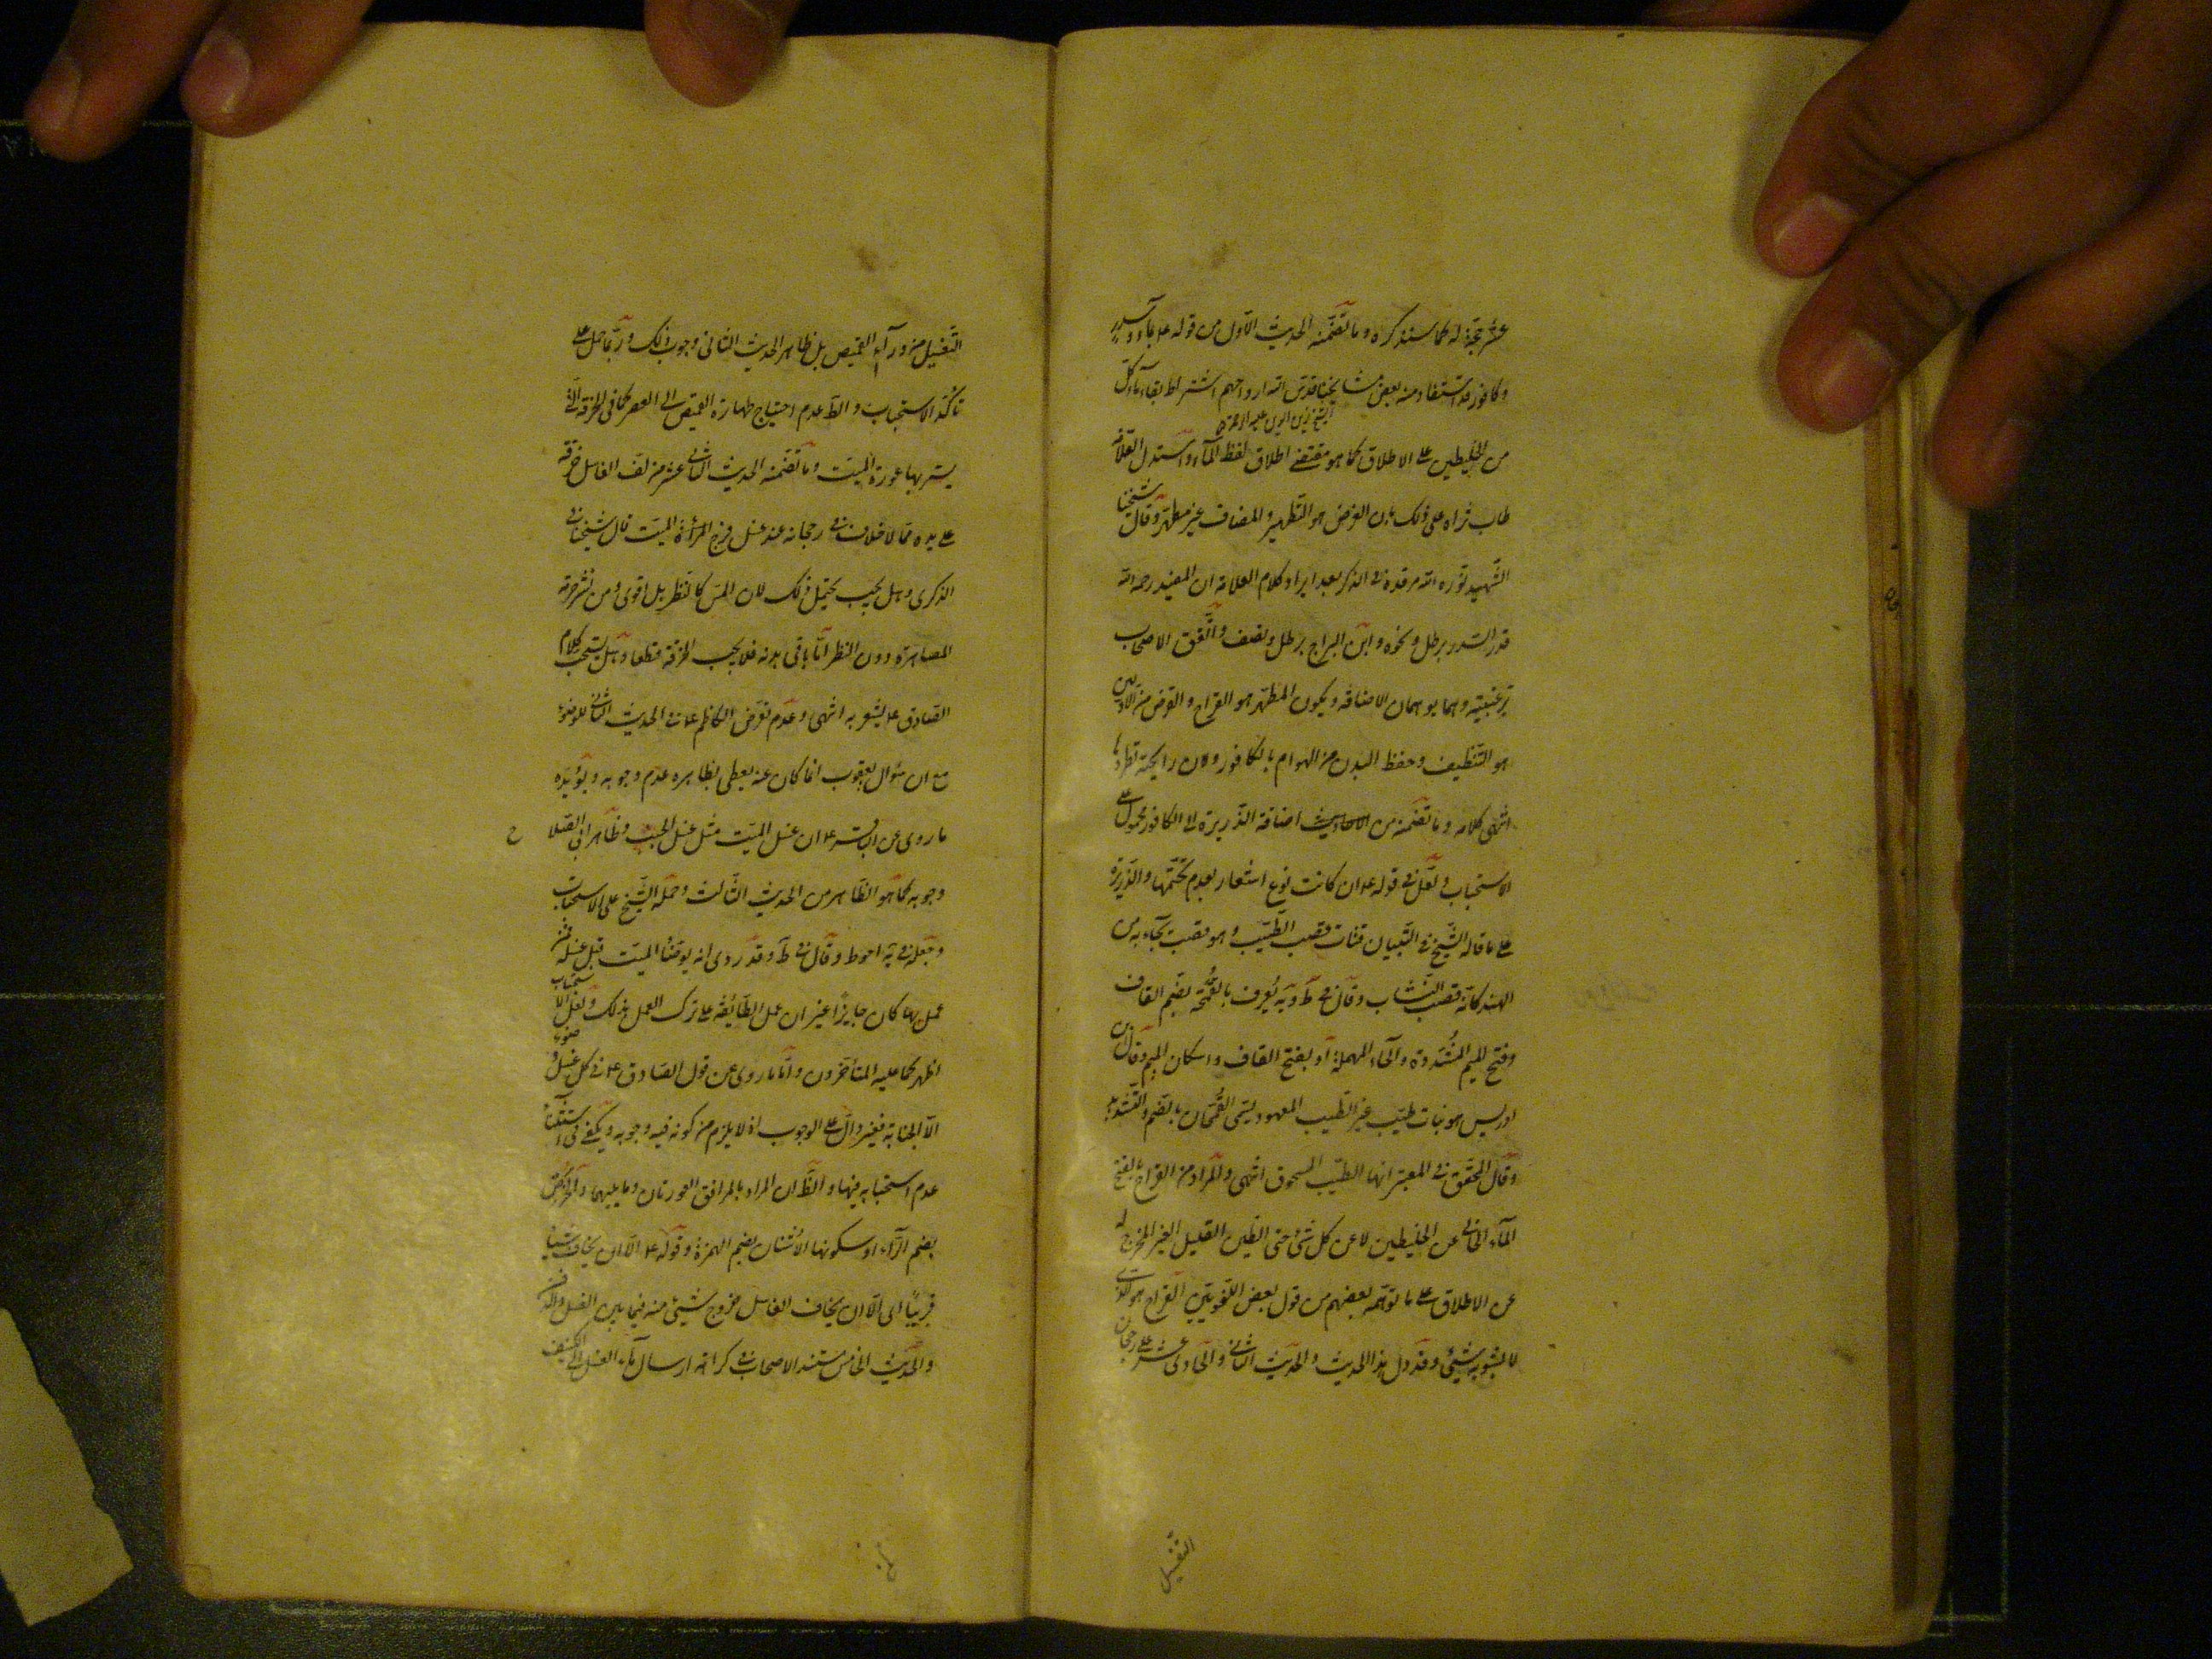 عشر حجة له كما سنذكره وما تضمنه الحديث الاول من قوله ع بماء وسدر
وكافور قد استفاد منه بعض مشايخنا قدس الله ارواحهم اشتراط بقاء ماء كل
الشيخ زين الدين عليه الرحمة
من الخليطين على الاطلاق كما هو مقتضى اطلاق لفظ المآء واستدل العلامة
طاب ثراه على ذلك بان الغرض هو التطهير والمضاف غير مطهر وقال شيخنا
الشهيد نور الله مرقده في الذكر بعد ايراد كلام العلامة ان المفيد رحمه الله
قدر السدر برطل ونحوه وابن البراج برطل ونصف واتفق الاصحاب
ترغيته وهما يوهمان الاضافة ويكون المطهر هو القراح والغرض من الاوليين
هو التنظيف وحفظ البدن من الهوام بالكافور لان رايحته تطردها
انتهى كلامه وما تضمنه من الاحاديث اضافة الذريرة الى الكافور محمول على
الاستحباب ولعل في قوله ع ان كانت نوع اشعار بعدم تحتمها والذريرة
على ما قاله الشيخ في التبيان فتات قصب الطيب وهو قصب يجآء به من
الهند كانه قصب النشاب وقال في ط و ية يُعرف بالقُمَّحة بضم القاف
وفتح الميم المشددة والحاء المهملة او بفتح القاف واسكان الميم وقال ابن
ادريس هو نبات طيب غير الطيب المعهود يسمى القُمَّحان بالضم والتشديد
وقال المحقق في المعتبر انها الطيب المسحوق انتهى والمراد من القراح بالفتح
المآء الخالى عن الخليطين لا عن كل شئ حتى الطين القليل الغير المخرج له
عن الاطلاق على ما توهمه بعضهم من قول بعض اللغويين القراح هو الذي
لا يشوبه شيئ وقد دل هذا الحديث والحديث الثاني والحادى عشر على رجحان
التغسيل
التغسيل من ورآء القميص بل ظاهر الحديث الثانى وجوب ذلك وربما حمل على
تأكد الاستحباب والظ عدم احتياج طهارة القميص الى العصر كما في الخرقة التى
يستر بها عورة الميت وما تضمنه الحديث الثانى عشر من لف الغاسل خرقة
على يده مما لا خلاف في رجحانه عند غسل فرج المرأة الميت قال شيخنا في
الذكرى وهل يجب يحتمل ذلك لان المس كالنظر بل اقوى ومن ثم نشر حرمة
المصاهرة دون النظر اما باقى بدنه فلا يجب الخرقة قطعا وهل يستحب كلام
الصادق ع يشعر به انتهى وعدم تعرض الكاظم ع في الحديث الثانى للوضوء
مع ان سؤال يعقوب انما كان عنه يعطى بظاهره عدم وجوبه ويؤيده
ما روى عن الباقر ع ان غسل الميت مثل غسل الجنب وظاهر ابى الصلاح
وجوبه كما هو الظاهر من الحديث الثالث وحمله الشيخ على الاستحباب
وجعله في ية احوط وقال في ط وقد روى انه يوضأ الميت قبل غسله فمن
عمل بها كان جايزًا غير ان عمل الطايفة على ترك العمل بذلك ولعل الاستحباب
اظهر كما عليه المتأخرون واما ما روى عن قول الصادق ع في كل غسل وضوء
الا الجنابة فغير دال على الوجوب اذ لا يلزم من كونه فيه وجوبه ويكفى في استثناء
عدم استحبابه فيها والظ ان المراد بالمرافق العورتان وما بينهما والحرض
بضم الرآء او سكونها الاشنان بضم الهمزة وقوله ع الا ان يخاف شيئا
قريبا اى الا ان يخاف الغاسل خروج شيئ منه فيما بين الغسل والدفن
والحديث الخامس مستند الاصحاب في كراهة ارسال مآء الغسل الى الكنيف